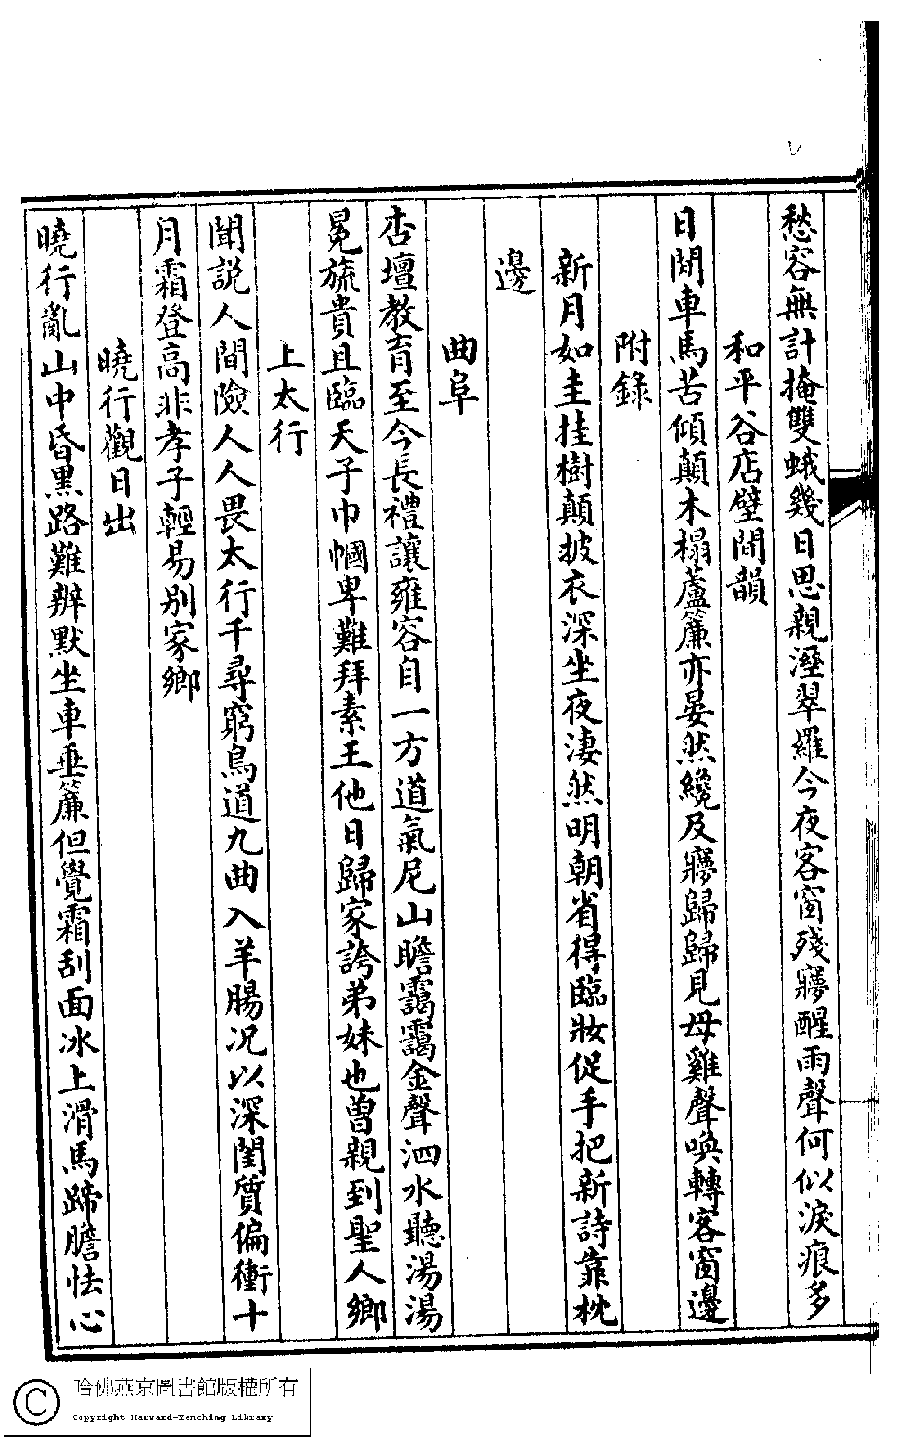 愁容無計掩雙蛾幾日思親溼翠羅今夜客窗殘夢醒雨聲何似淚痕多
和平谷店壁間韻
日間車馬苦傾顛木榻蘆簾亦晏然纔及夢歸歸見母雞聲喚轉客窗邊
附錄
新月如圭挂樹顛披衣深坐夜淒然明朝省得臨妝促手把新詩靠枕
邊
曲阜
杏壇教育至今長禮讓雍容自一方道氣尼山瞻靄靄金聲泗水聽湯湯
冕旒貴且臨天子巾幗卑難拜素王他日歸家誇弟妹也曾親到聖人鄉
上太行
聞說人間險人人畏太行千尋窮鳥道九曲入羊腸况以深閨質偏衝十
月霜登高非孝子輕易別家鄉
曉行觀日出
曉行亂山中昏黑路難辨默坐車垂簾但覺霜刮面冰上滑馬蹄膽怯心
哈佛燕京圖書館版權所有
Copyright Harvard-Yenching Library